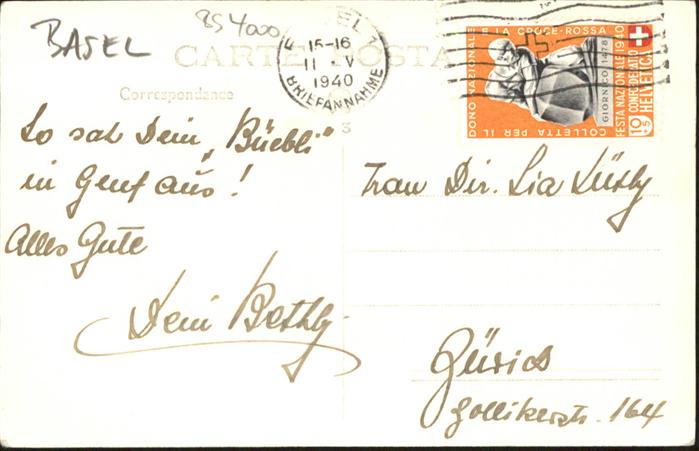 BASEL
854000
CARTE POSTALE
Correspondance
BASEL 1
15-16
11 IV
1940
BRIEFANNAHME
3
DONO NAZIONALE E LA CROCE-ROSSA
COLLETTA PER IL
GIORNICO 1478
FESTA NAZIONALE 1940
CONFEDERATO
HELVETIA
10+5
So sah Dein „Büebli"
in Genf aus!
Alles Gute
Dein Bethly
Frau Dir. Lia
Zürich
Zollikerstr. 164